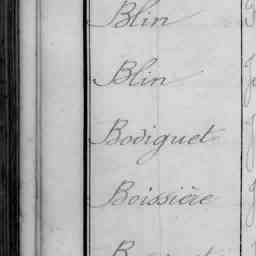 Blin
Blin
Bodiguet
Boissière